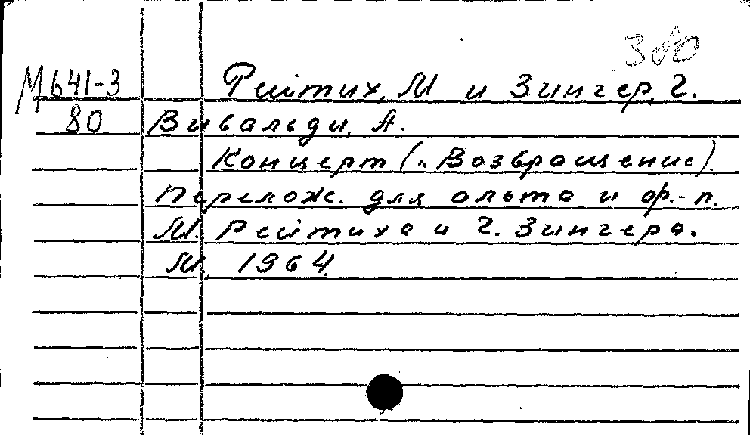 300
М641-3
80
Рейтих, М и Зингер, Г.
Вивальди, А.
Концерт („Возвращение).
Перелож. для альта и ф.-п.
М. Рейтиха и Г. Зингера.
М., 1964